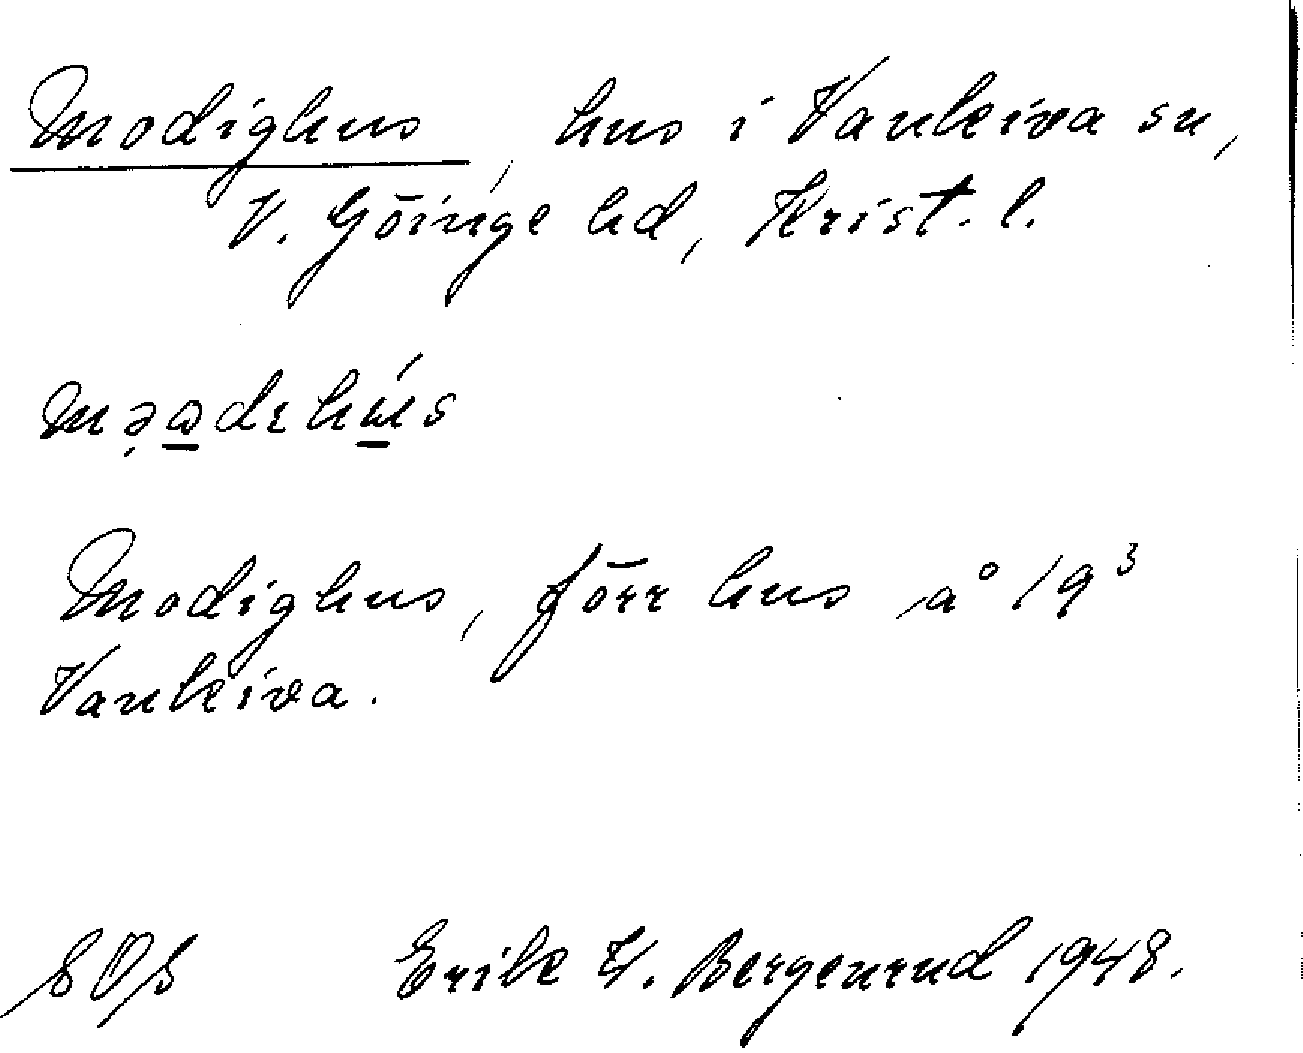 Modighus, hus i Vankiva sn,
V. Göinge hd, Krist. l.
Modighus, förr hus å 19³
Vankiva.
SOS Erik W. Bergenrud 1948.